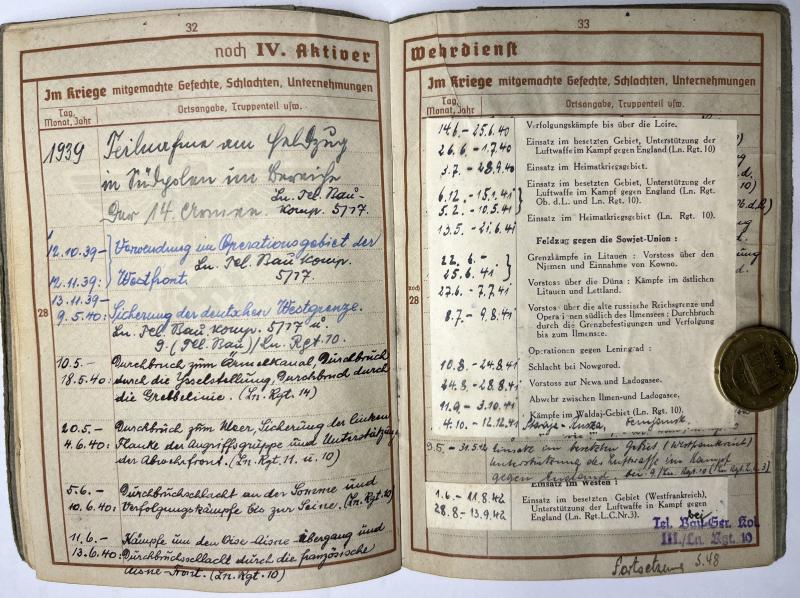 32
noch IV. Aktiver
Im Kriege mitgemachte Gefechte, Schlachten, Unternehmungen
Tag, Monat, Jahr
Ortsangabe, Truppenteil usw.
1939 Teilnahme am Feldzug
in Südpolen im Bereiche
Der 14. Armee. Ln. Tel. Bau-
Komp. 5/17.
12.10.39- Verwendung im Operationsgebiet der
12.11.39- Westfront. Ln. Tel. Bau Komp.
5/17
13.11.39-
28
9.5.40: Sicherung der deutschen Westgrenze.
Ln. Tel. Bau Komp. 5/17 u.
9. (Tel. Bau)/Ln. Rgt. 10.
10.5.- Durchbruch zum Ärmelkanal, Durchbruch
18.5.40: durch die Ysselstellung, Durchbruch durch
die Grebbelinie. (Ln. Rgt. 14)
20.5.- Durchbruch zum Meer, Sicherung der linken
4.6.40: Flanke der Angriffsgruppe und Unterstützung
der Abwehrfront. (Ln. Rgt. 11. u. 10)
5.6.- Durchbruchschlacht an der Somme und
10.6.40: Verfolgungskämpfe bis zur Seine. (Ln. Rgt. 10)
11.6.- Kämpfe um den Oise-Aisne-Übergang und
13.6.40: Durchbruchsschlacht durch die französische
Aisne-Front. (Ln. Rgt. 10)
33
Wehrdienst
Im Kriege mitgemachte Gefechte, Schlachten, Unternehmungen
Tag, Monat, Jahr
Ortsangabe, Truppenteil usw.
14.6.-25.6.40 Verfolgungskämpfe bis über die Loire.
26.6.-1.7.40 Einsatz im besetzten Gebiet, Unterstützung der
Luftwaffe im Kampf gegen England (Ln. Rgt. 10)
3.7.-28.9.40 Einsatz im Heimatkriegsgebiet.
6.12.-15.1.41 Einsatz im besetzten Gebiet, Unterstützung der
Luftwaffe im Kampf gegen England (Ln. Rgt.
5.2.-10.5.41 Ob. d.L. und Ln. Rgt. 10).
13.5.-21.6.41 Einsatz im Heimatkriegsgebiet (Ln. Rgt. 10).
Feldzug gegen die Sowjet-Union :
22.6.- Grenzkämpfe in Litauen : Vorstoss über den
25.6.41 Njimen und Einnahme von Kowno.
27.6.-7.7.41 Vorstoss über die Düna : Kämpfe im östlichen
Litauen und Lettland.
noch
28
8.7.-9.8.41 Vorstoss über die alte russische Reichsgrenze und
Operationen südlich des Ilmensees : Durchbruch
durch die Grenzbefestigungen und Verfolgung
bis zum Ilmensee.
Operationen gegen Leningrad :
10.8.-24.8.41 Schlacht bei Nowgorod.
24.8.-28.8.41 Vorstoss zur Newa und Ladogasee.
11.9.-3.10.41 Abwehr zwischen Ilmen-und Ladogasee.
4.10.-12.12.41 Kämpfe im Waldaj-Gebiet (Ln. Rgt. 10).
9.5.-31.5.42 Einsatz im besetzten Gebiet (Westfrankreich)
Unterstützung der Luftwaffe im Kampf
gegen England bei 9./Ln. Rgt. 10
Einsatz im Westen :
1.6.-11.8.42 Einsatz im besetzten Gebiet (Westfrankreich),
Unterstützung der Luftwaffe im Kampf gegen
28.8-13.9.42 England (Ln. Rgt.L.C.Nr.3).
bei
Tel. Bau Ger. Kol.
III./Ln. Rgt. 10
Fortsetzung S. 48